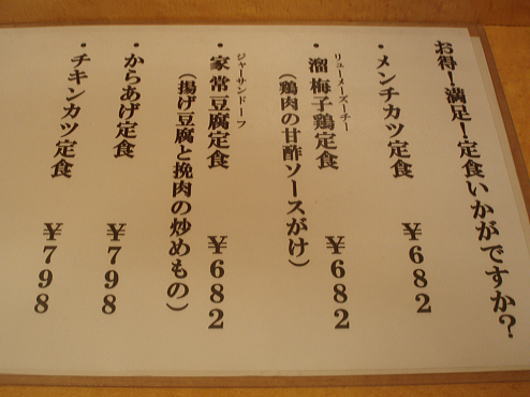 お得！満足！定食いかがですか？
・メンチカツ定食 ￥682
リューメーズーチー
・溜梅子鶏定食 ￥682
（鶏肉の甘酢ソースがけ）
ジャーサンドーフ
・家常豆腐定食 ￥682
（揚げ豆腐と挽肉の炒めもの）
・からあげ定食 ￥798
・チキンカツ定食 ￥798